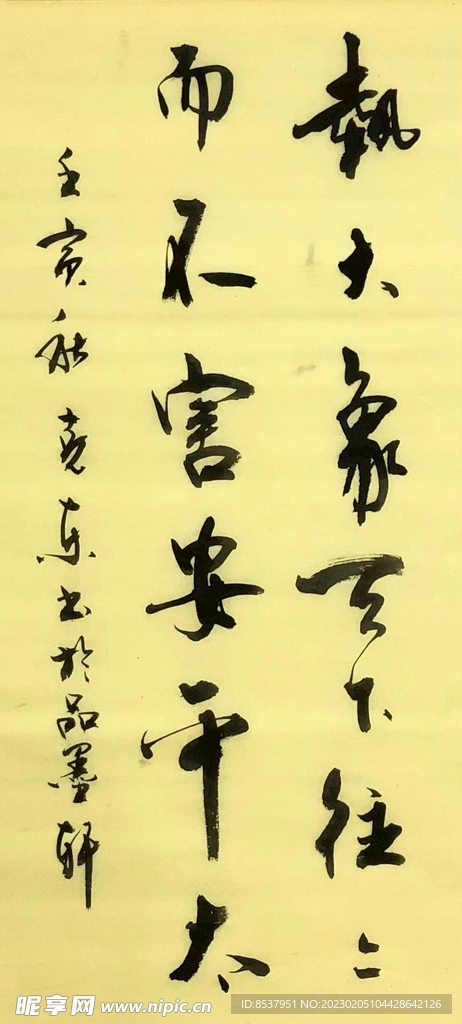 執大象天下往々
而不害安平太
壬寅秋尧东书於品墨轩
昵享网 www.nipic.cn
ID:8537951 NO:20230205104428642126